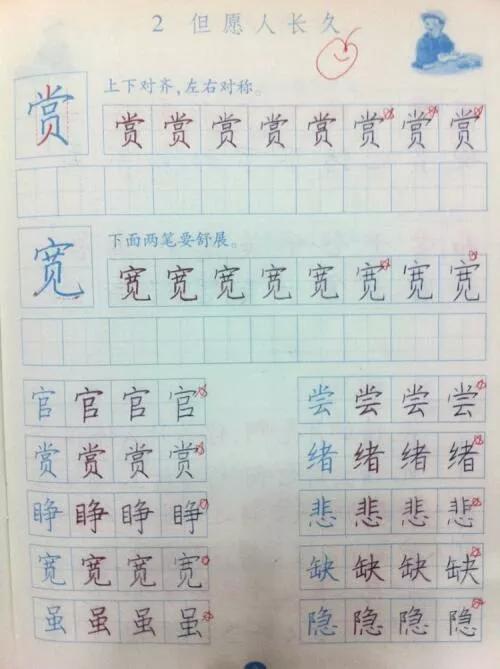 2 但愿人长久
赏 上下对齐,左右对称。
赏 赏 赏 赏 赏 赏 赏 赏
宽 下面两笔要舒展。
宽 宽 宽 宽 宽 宽 宽 宽
官 官 官 官 尝 尝 尝 尝
赏 赏 赏 赏 绪 绪 绪 绪
睁 睁 睁 睁 悲 悲 悲 悲
宽 宽 宽 宽 缺 缺 缺 缺
虽 虽 虽 虽 隐 隐 隐 隐